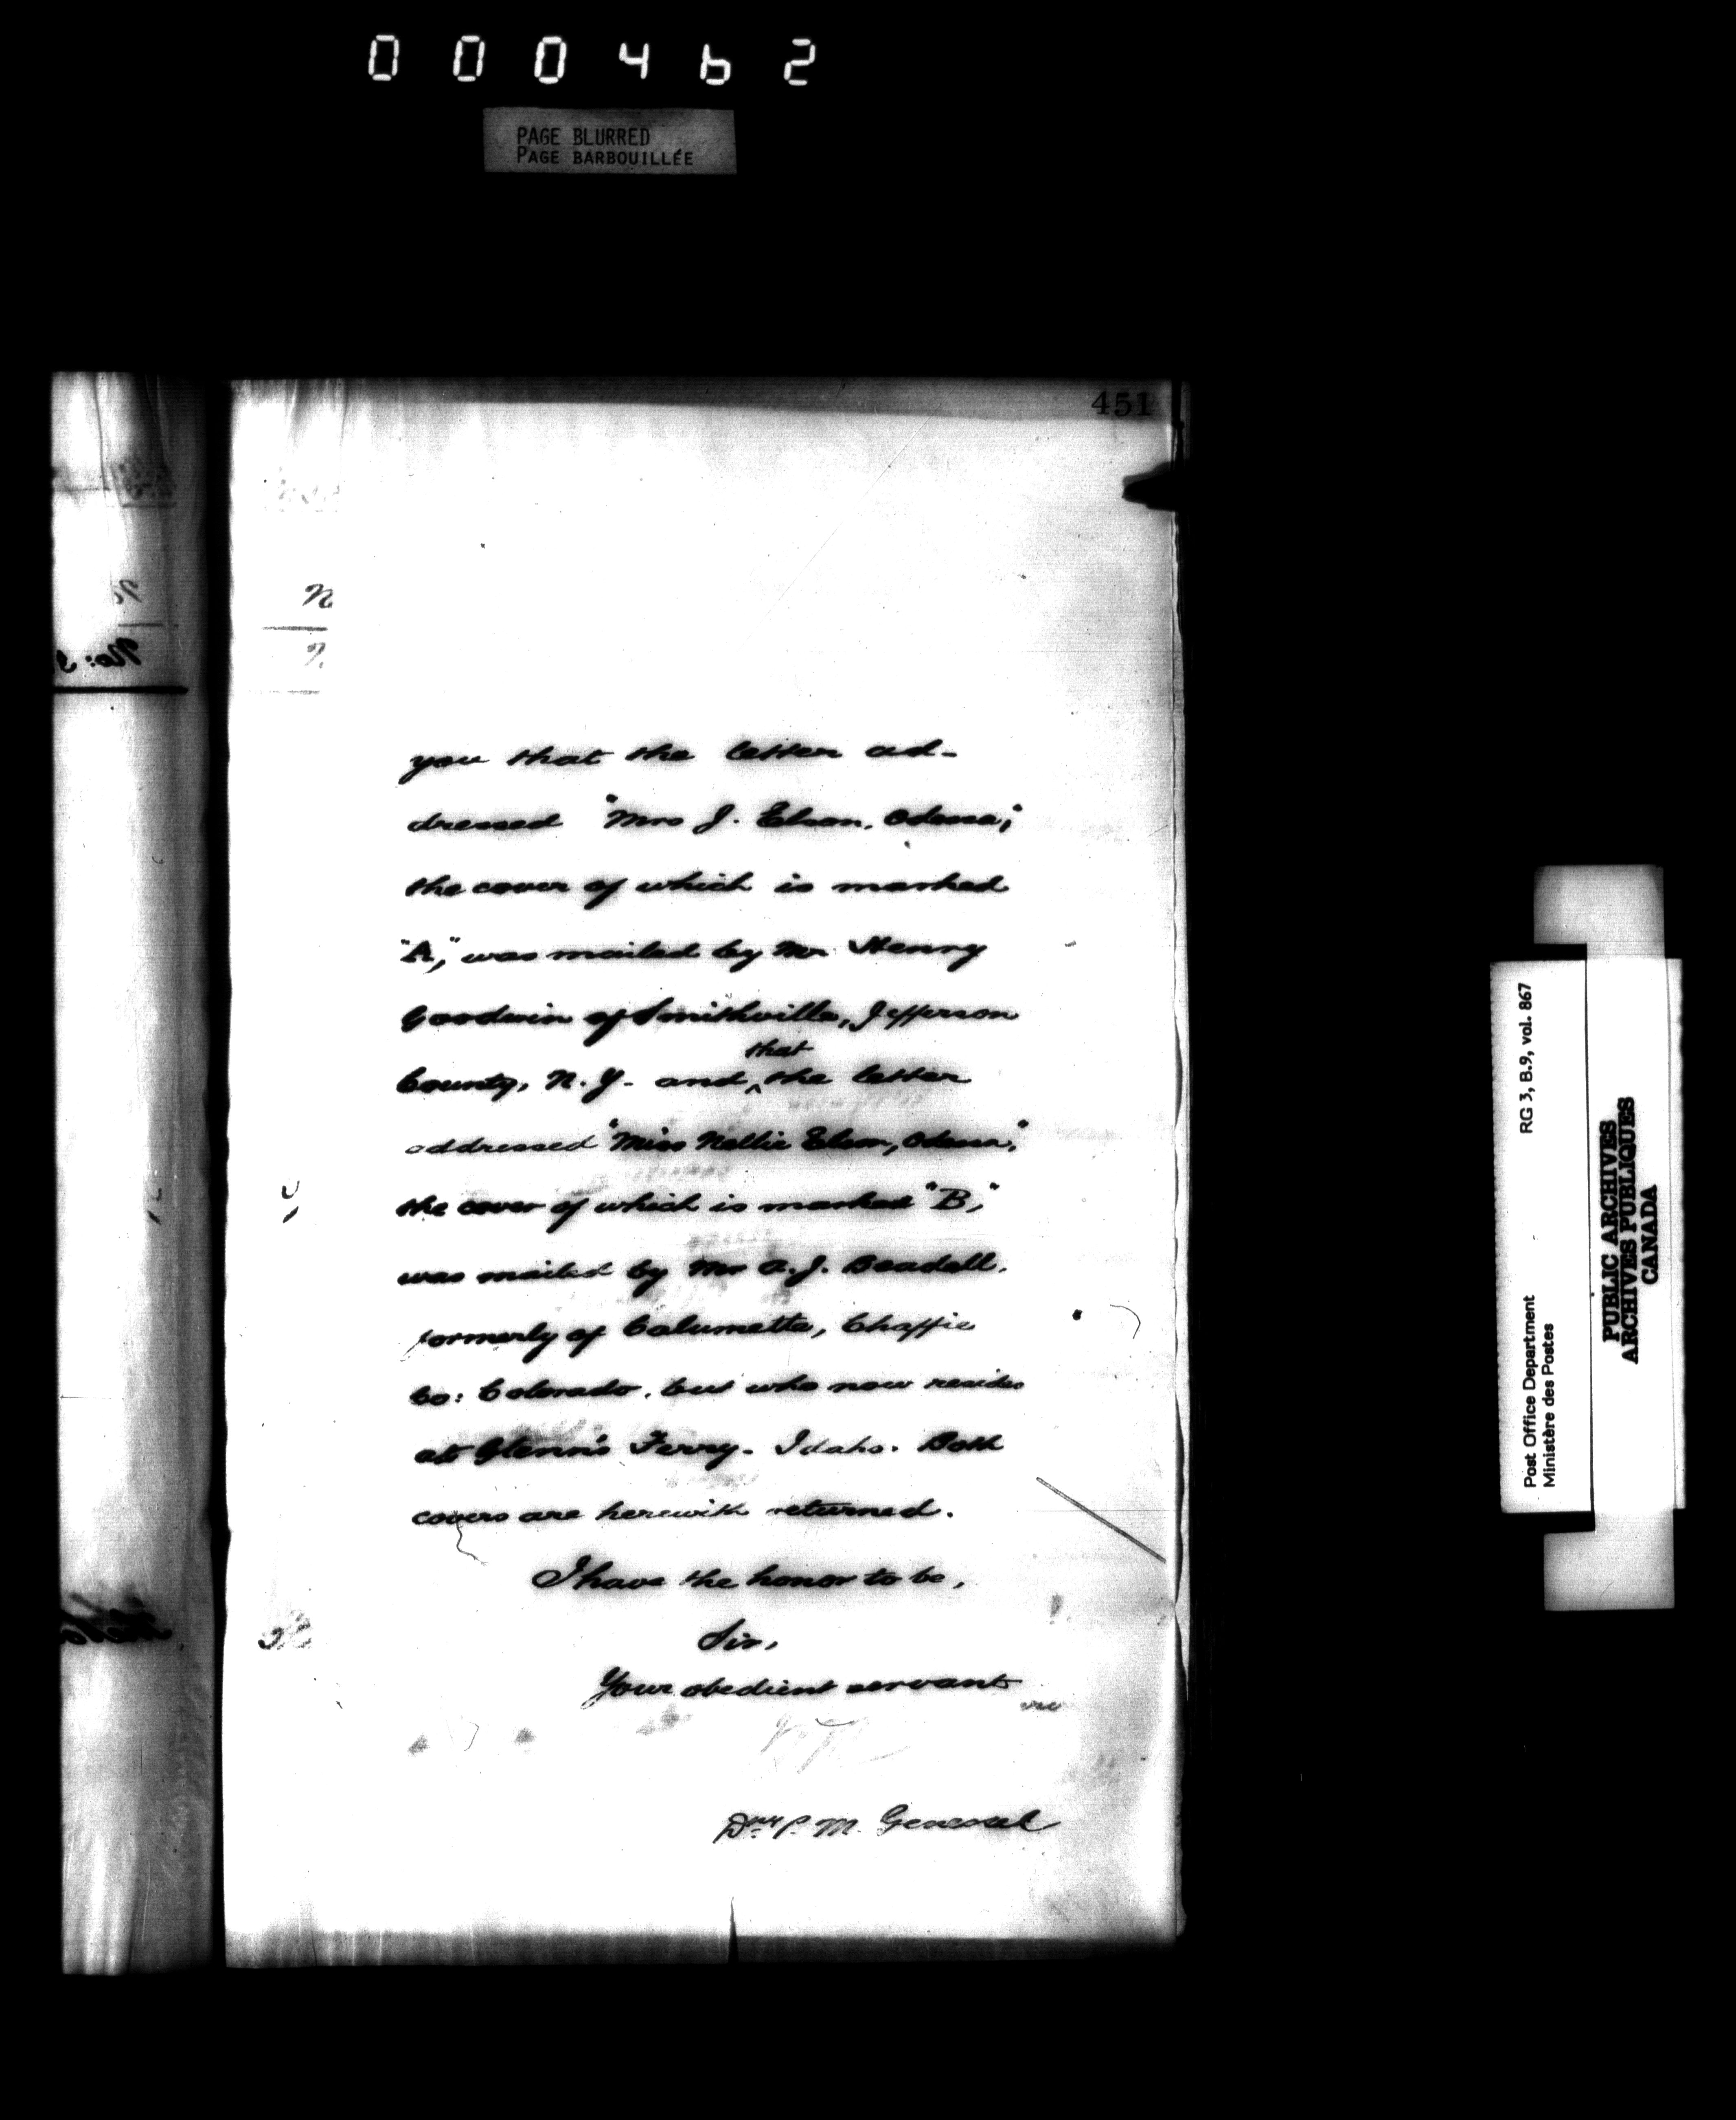 000462
PAGE BLURRED
PAGE BARBOUILLÉE
451
you that the letter ad-
dressed "Mrs J. Elson, Odessa,"
the cover of which is marked
"A," was mailed by Mr. Henry
Goodwin of Smithville, Jefferson
that
County, N.Y. and ^ the letter
addressed "Miss Nellie Elson, Odessa,"
the cover of which is marked "B,"
was mailed by Mr A. J. Beadell,
formerly of Calumette, Chaffie
Co: Colorado, but who now resides
at Glenn's Ferry. Idaho. Both
covers are herewith returned.
I have the honor to be,
Sir,
Your obedient servant
P. M. General
RG 3, B.9, vol. 867
Post Office Department
Ministère des Postes
PUBLIC ARCHIVES
ARCHIVES PUBLIQUES
CANADA